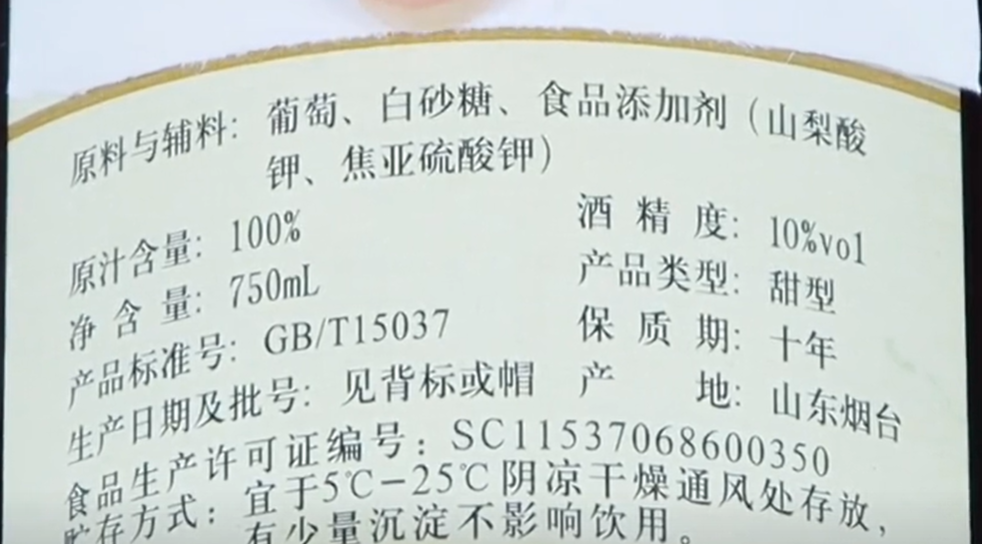 原料与辅料：葡萄、白砂糖、食品添加剂（山梨酸
钾、焦亚硫酸钾）
原汁含量：100%
酒精度：10%vol
净含量：750mL
产品类型：甜型
产品标准号：GB/T15037
保质期：十年
生产日期及批号：见背标或帽
产地：山东烟台
食品生产许可证编号：SC11537068600350
贮存方式：宜于5℃-25℃阴凉干燥通风处存放，
有少量沉淀不影响饮用。